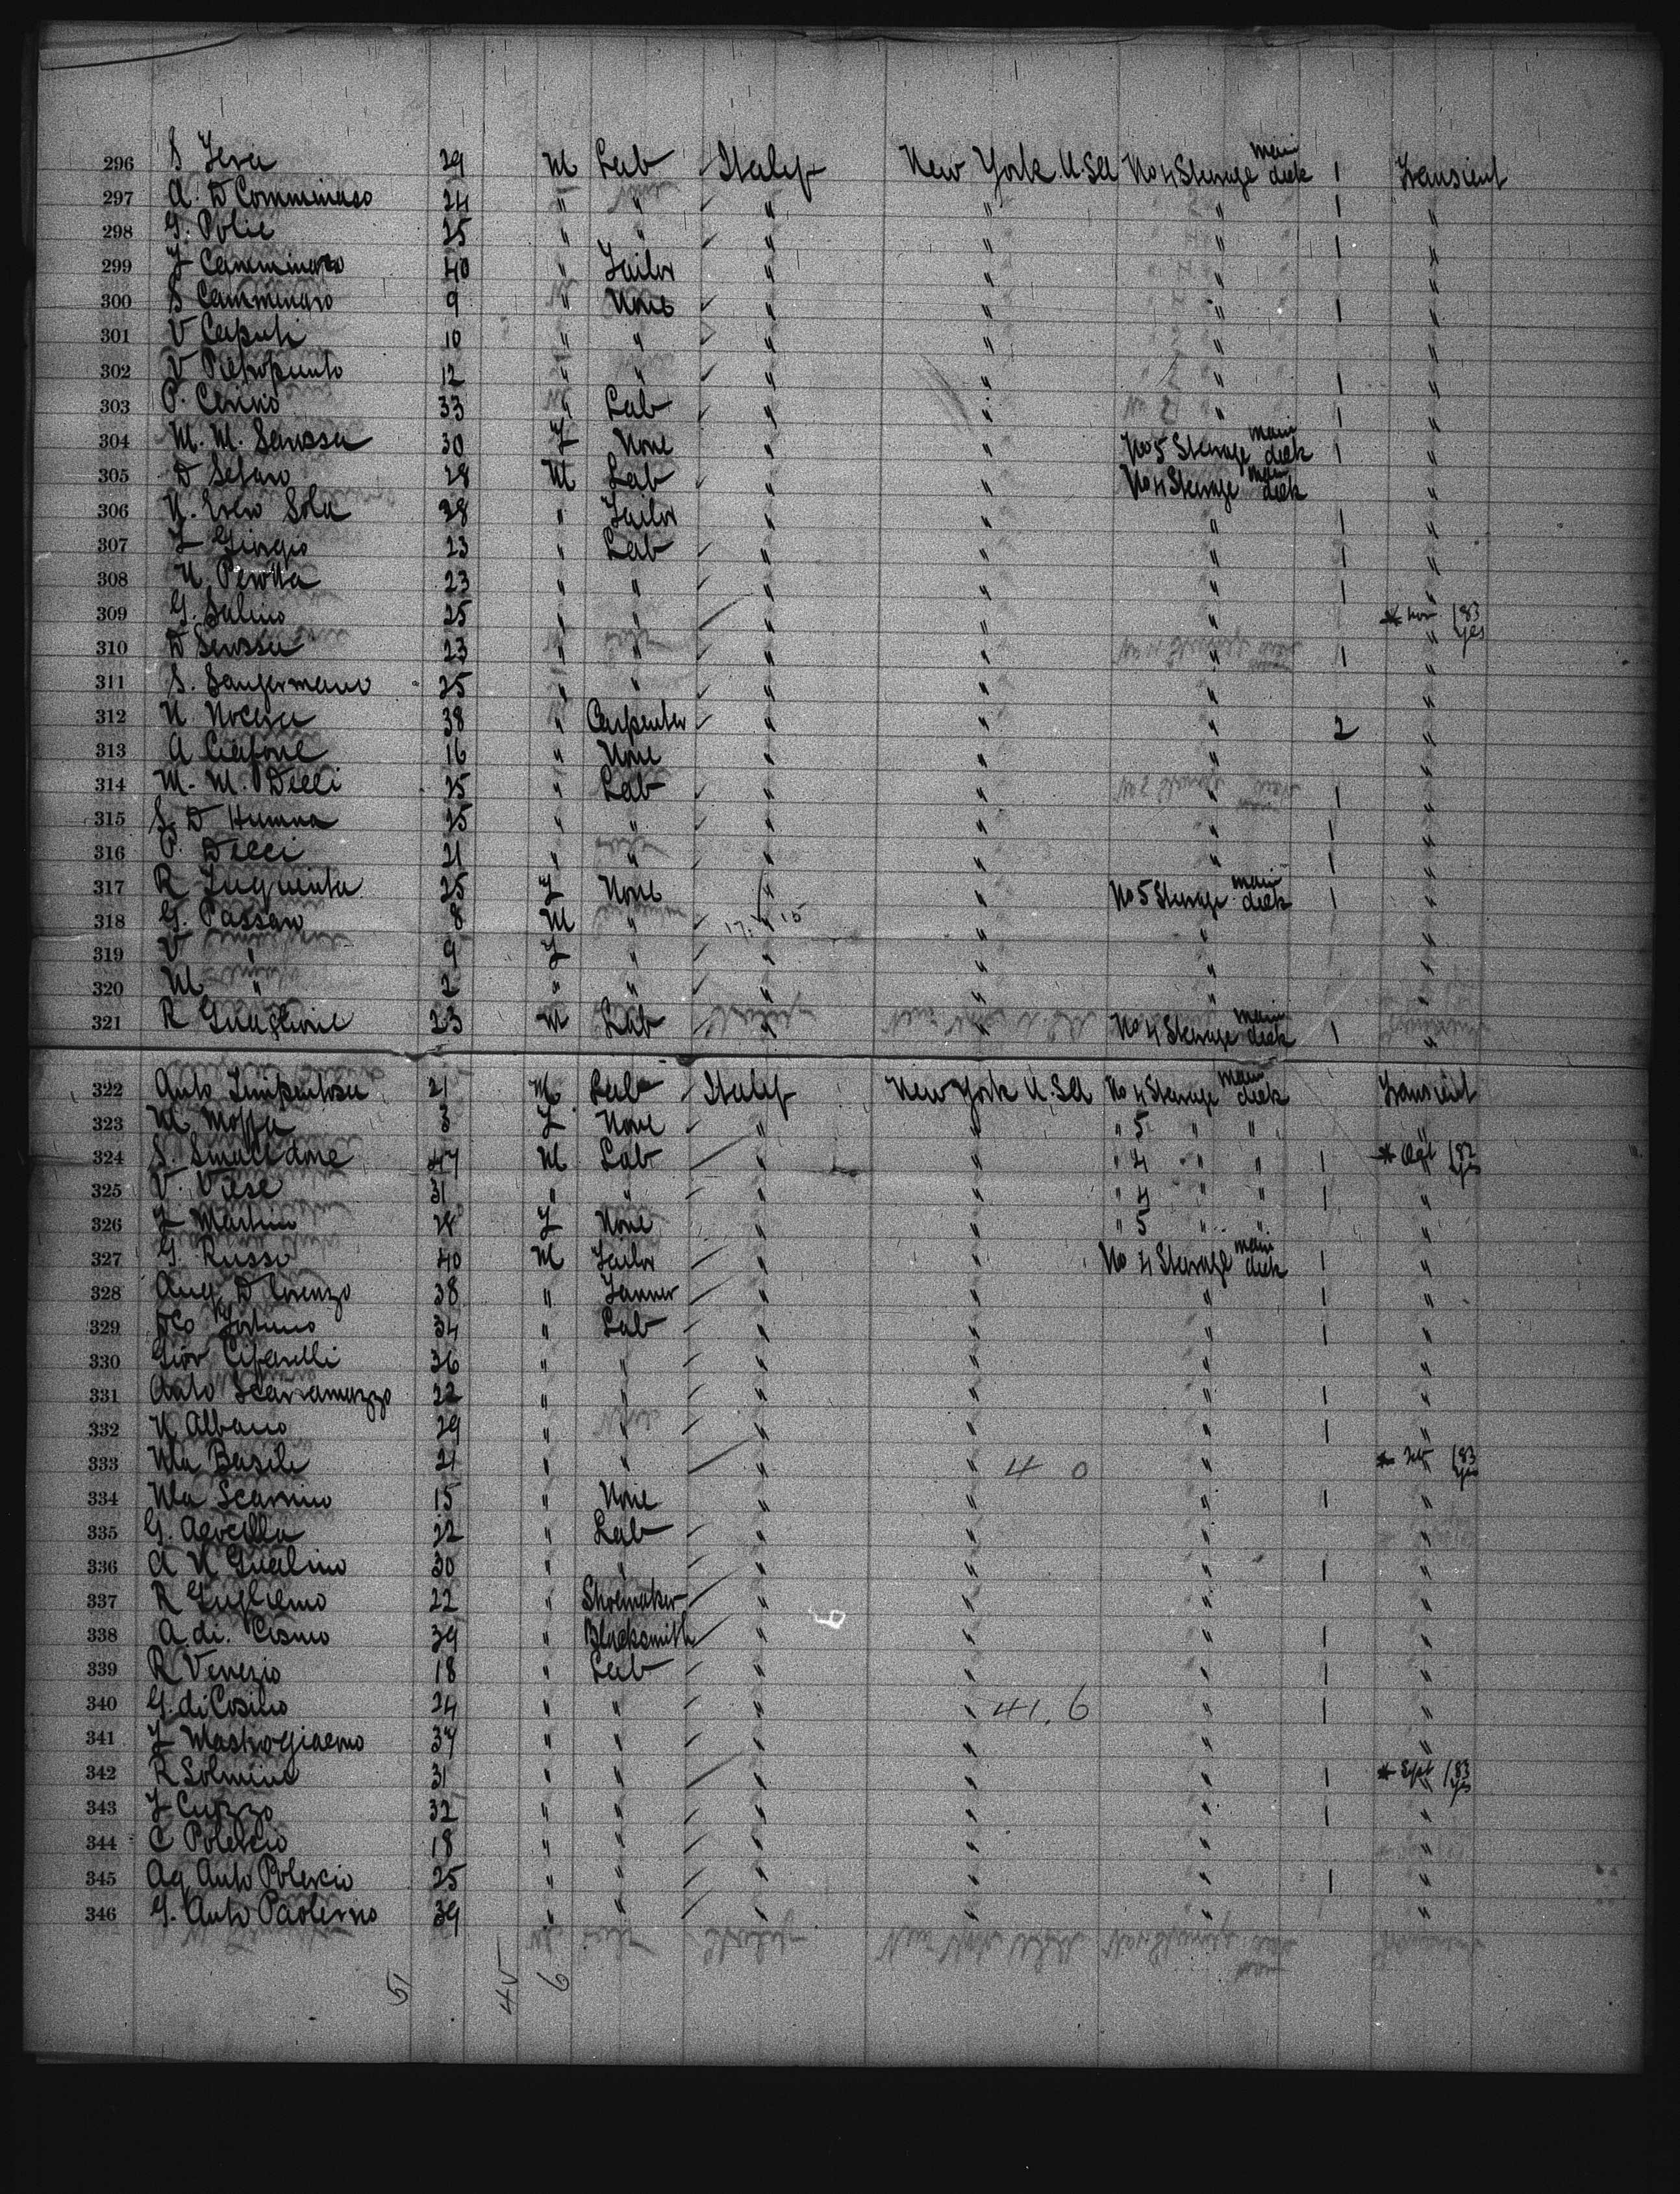 296 S 29 M Lab Italy New York U.S.A No 4 Steerage main deck 1 Transient
297 A. D Comminaso 24 " " " " " 1 "
298 G. Polie 25 " " " " " 1 "
299 40 " Tailor " " " "
300 S Camminaro 9 " None " " " 1 "
301 V Caputi 10 " " " " " "
302 V Pietropinto 12 " " " " " 1 "
303 P. Cerino 33 " Lab " " " 1 "
304 M. M. 30 F None " " No 5 Steerage main deck 1 "
305 D Sefaro 28 M Lab " " No 4 Steerage main deck "
306 Sola 28 " Tailor " " " 1 "
307 F Giorgio 23 " Lab " " " 1 "
308 N. Perotta 23 " " " " " 1 "
309 G. Salino 25 " " " " " * Nov 183 yes "
310 D 23 " " " " " 1 "
311 S. Sangermano 25 " " " " " "
312 N Nocera 38 " Carpenter " " " 2 "
313 A Ciafone 16 " None " " " "
314 M. M. Dilli 25 " Lab " " " 1 "
315 S. D 25 " " " " " 1 "
316 P. 21 " " " " " 1 "
317 R 25 F None " " No 5 Steerage main deck 1 "
318 G. Passaro 8 M " " " " "
319 V " 9 F " " " " "
320 M " 2 " " " " " "
321 R Guaglione 23 M Lab " " No 4 Steerage main deck 1 "
322 Anto 21 M Lab Italy New York U.S.A No 4 Steerage main deck Transient
323 M Moffa 3 F None " " " 5 " " "
324 S. Smaldone 47 M Lab " " " 4 " " 1 * Oct 182 yes
325 V. Viese 31 " " " " " 4 " " 1 "
326 F Martino 28 F None " " " 5 " " "
327 G. Russo 40 M Tailor " " No 4 Steerage main deck 1 "
328 Ang D Lorenzo 38 " " " " 1 "
329 Fco 34 " Lab " " " 1 "
330 Giov Cifarelli 36 " " " " " "
331 Anto Scarramuzzo 22 " " " " " 1 "
332 N Albano 29 " " " " " 1 "
333 Nla Basile 21 " " " " 4 0 " * Feb 183 yes
334 Nla Scarnino 15 " None " " " 1 "
335 G. Acocella 22 " Lab " " " "
336 A N Guglino 30 " " " " " 1 "
337 R Guglielmo 22 " Shoemaker " " " "
338 A. di. Cosmo 39 " Blacksmith " " " 1 "
339 R Venezio 18 " Lab " " " 1 "
340 G. di Cosmo 24 " " " " 41.6 " 1 "
341 F Mastrogiacmo 37 " " " " " "
342 R Solmine 31 " " " " " 1 * Sept 183 yes
343 F Cuzzo 32 " " " " " 1 "
344 C Polercio 18 " " " " " "
345 Ag Anto Polercio 25 " " " " " 1 "
346 G. Anto Paolerno 39 " " " " " "
51 45 6